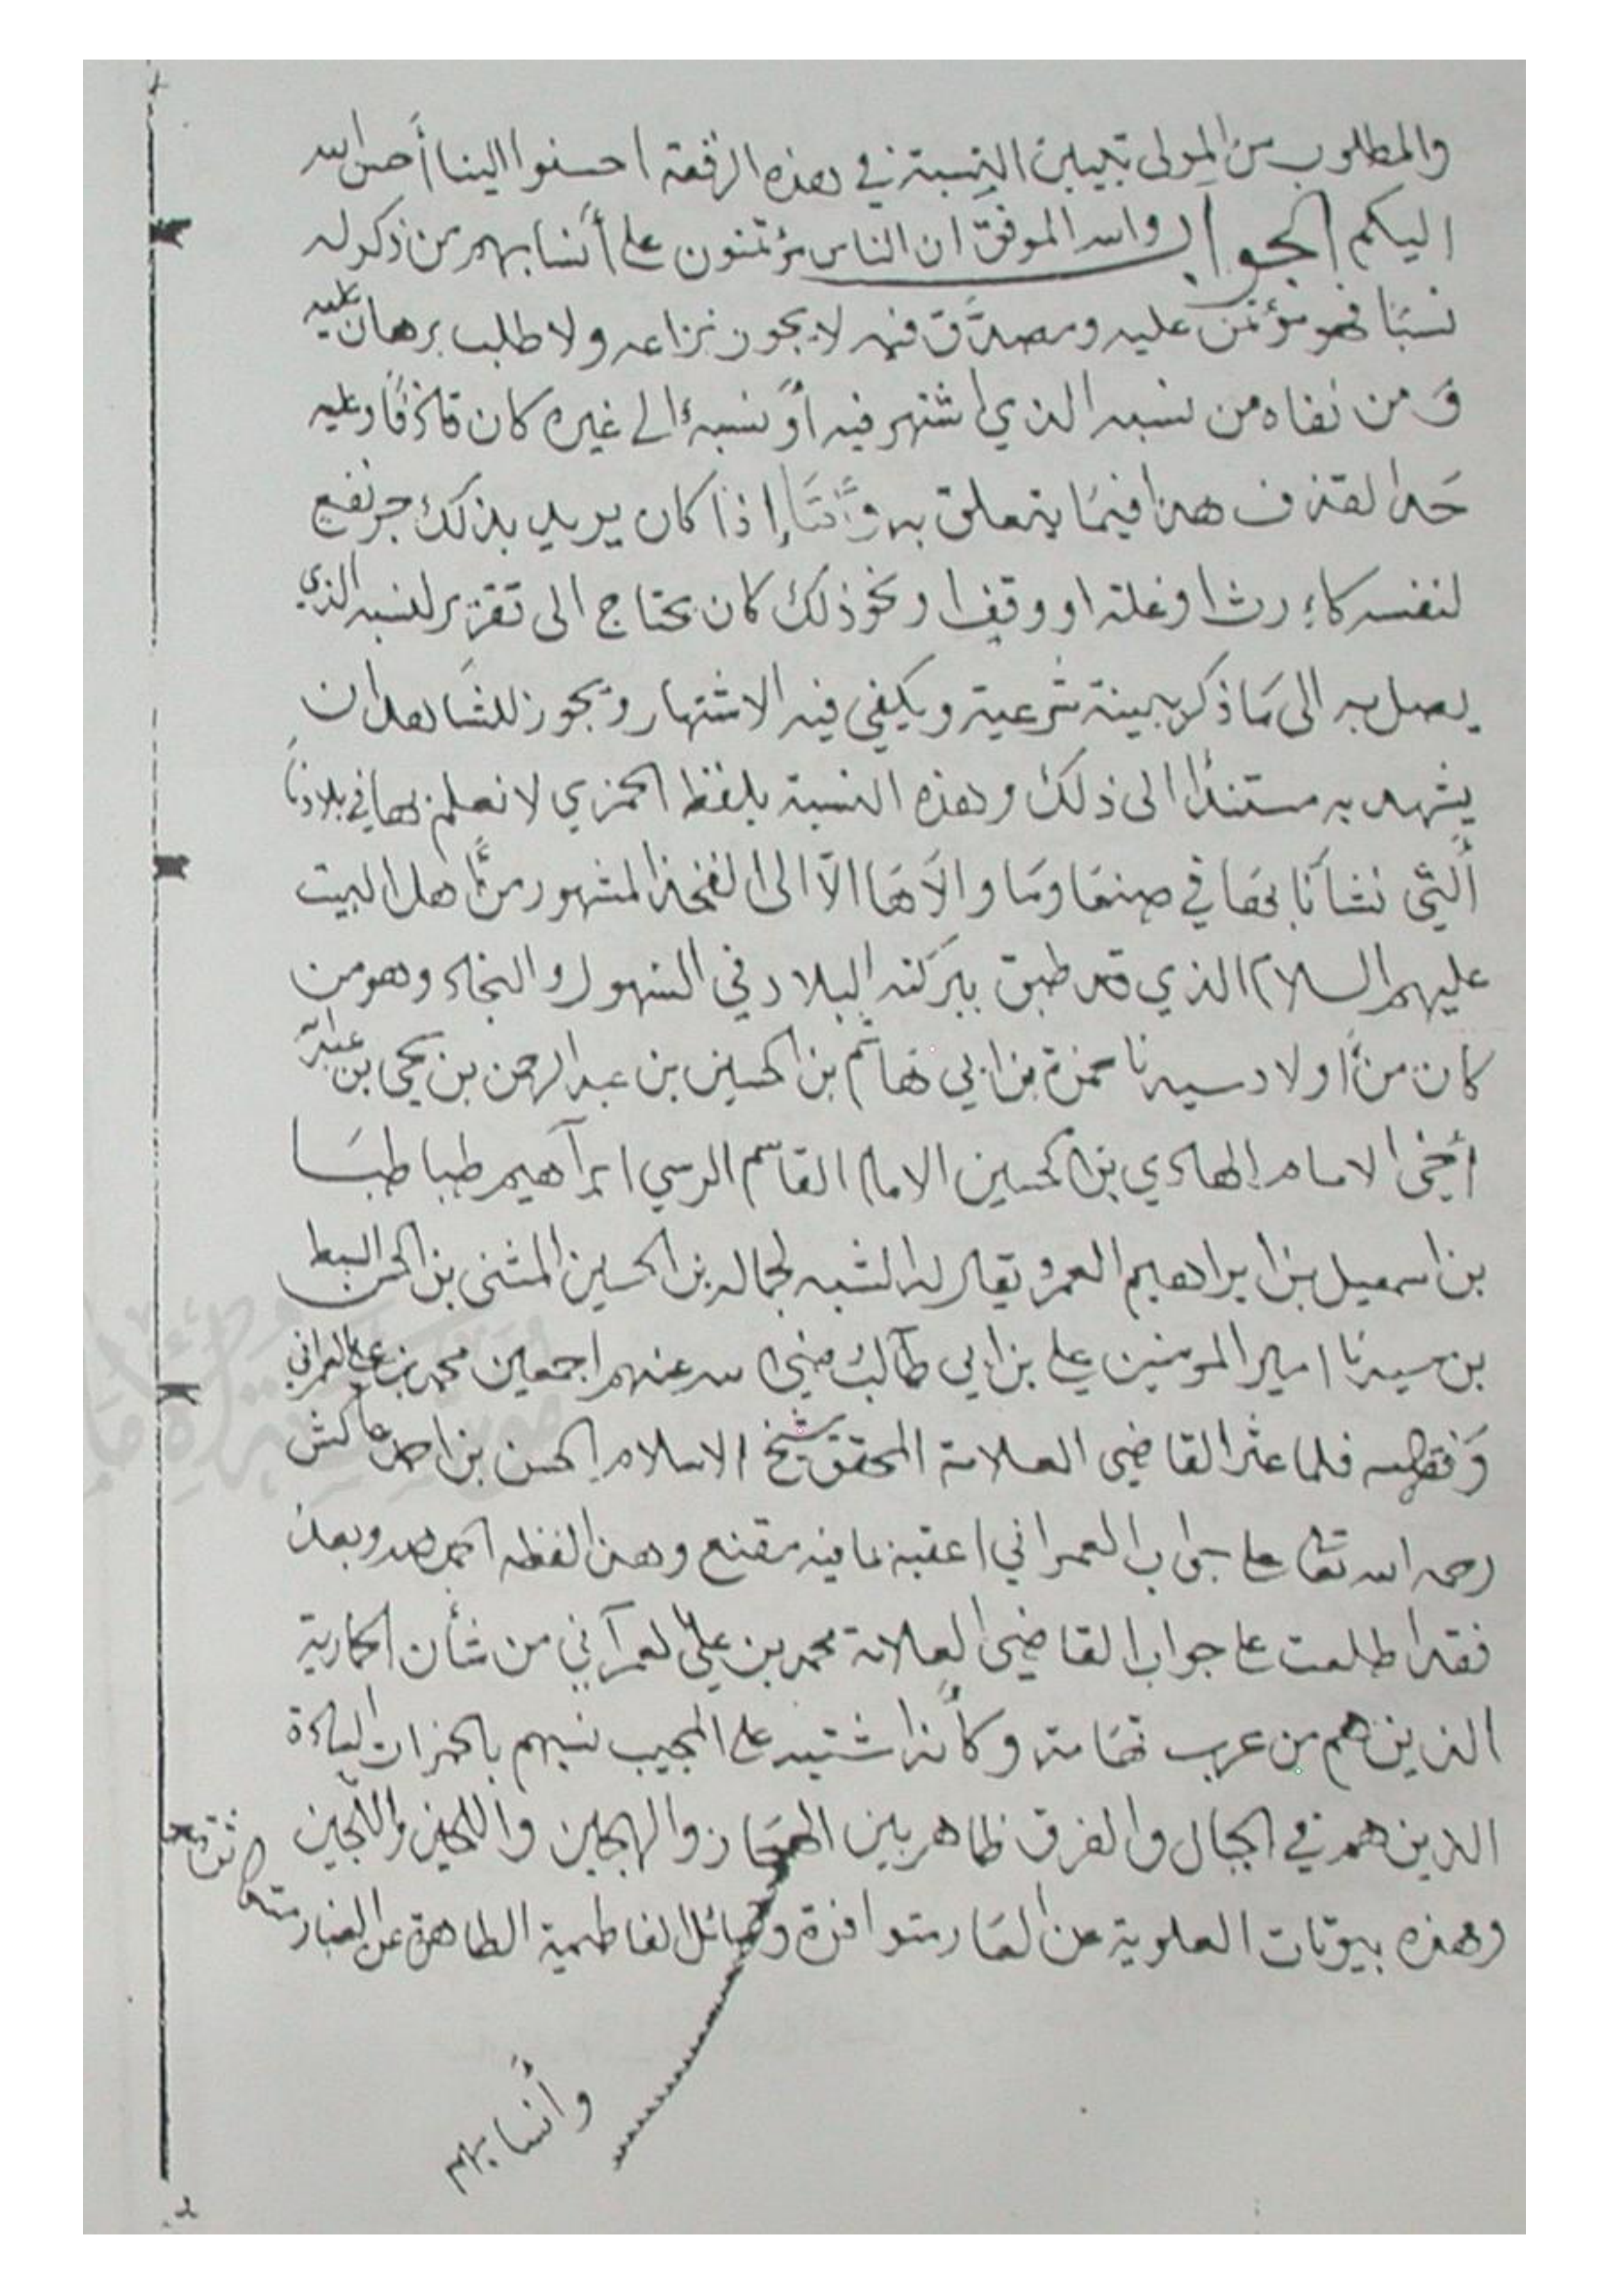 والمطلوب من المولى تبيين النسبة في هذه الرقعة احسنوا الينا أحسن الله
اليكم الجواب والله الموفق ان الناس مؤتمنون على أنسابهم من ذكر له
نسبًا فهو مؤتمن عليه ومصدَّق فيه لا يجوز نزاعه ولا طلب برهان عليه
وَمن نفاه من نسبه الذي اشتهر فيه أو نسبه الى غيره كان قاذفًا وعليه
حَد القذف هذا فيمَا يتعلق به إذا كان يريد بذلك جر نفع
لنفسه كإرث او غلة او وقف او نحو ذلك كان يحتاج الى تقرير لنسبه الذي
يصل به الى مَا ذكر ببينة شرعية ويكفي فيه الاشتهار ويجوز للشاهد ان
يشهد به مستندًا الى ذلك وهذه النسبة بلفظ الحمزي لا نعلم بها في بلادنا
ألتي نشأنا بها في صنعا ومَا والاهَا الاّ الى الفخذ المشهور من أهل البيت
عليهم السلام الذي قد طبق ببركته البلاد في السهول والنجاد وهو من
كان من أولاد سيدنا حمزة بن ابي هاشم بن الحسين بن عبد الرحمن بن يحيى بن عبد الله
أخي الامام الهادي بن الحسين الامام القاسم الرسي ابرآهيم طباطبَا
بن اسمعيل بن ابراهيم الغمر ويقال له الشبه لجماله بن الحسين المثنى بن الحسن السبط
بن سيدنا امير المومنين علي بن ابي طالب رضي الله عنهم اجمعين محمد بن علي العمراني
وَفقه الله فلما عثر القاضي العلامة المحقق شيخ الاسلام الحسن بن احمد عاكش
رحمه الله تعالى على جواب العمراني اعقبه بما فيه مقنع وهذا لفظه الحمد لله وبعد
فقد اطلعت على جواب القاضي العلامة محمد بن عليّ العمرآني من شأن الحمازية
الذين هم من عرب تهَامة وكأنه اشتبه على المجيب نسبهم بالحمزات السادة
الذين هم في الجبال والفرق ظاهر بين الهجَان والهجين واللجين واللَّجين
وهذه بيوتات العلوية عن العَار متوافرة وقبائل الفاطمية الطاهرة عن الغبار
وأنسابهم